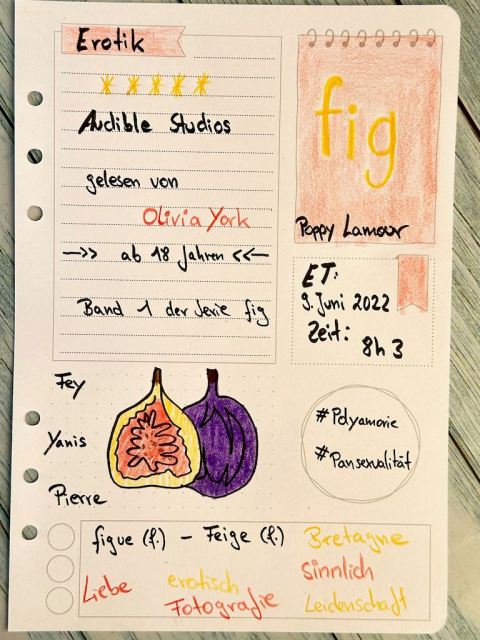 Erotik
Audible Studios
gelesen von
Olivia York
ab 18 Jahren
Band 1 der Serie fig
fig
Poppy Lamour
ET:
9. Juni 2022
Zeit:
8h 3
Fey
Yanis
Pierre
#Polyamorie
#Pansexualität
figue (f.) – Feige (f.)
Bretagne
Liebe
erotisch
Sinnlich
Fotografie
Leidenschaft